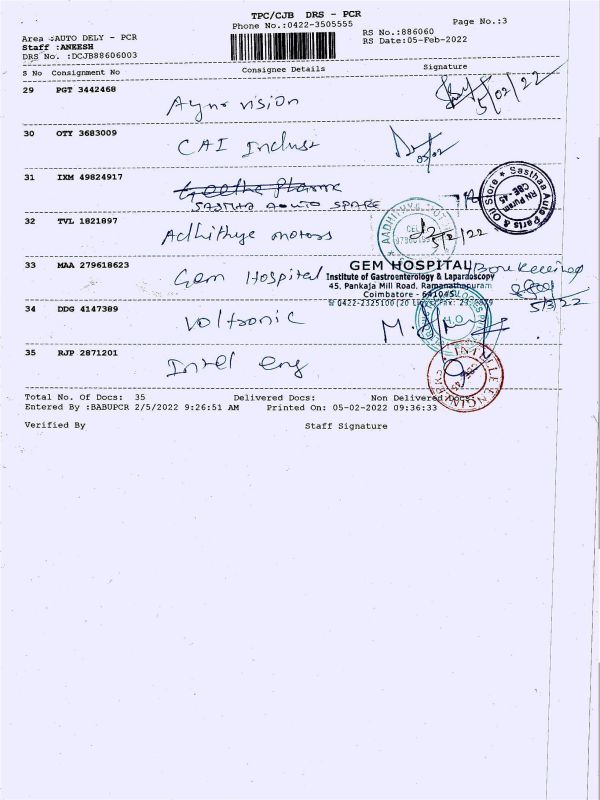 TPC/CJB DRS - PCR
Phone No.:0422-3505555
Page No.:3
RS No.:886060
RS Date:05-Feb-2022
Area :AUTO DELY - PCR
Staff :ANEESH
DRS No. :DCJB88606003
S No Consignment No Consignee Details Signature
29 PGT 3442468
vision
5/02/22
30 OTY 3683009
CAI
05/02
31 IXM 49824917
SASTHA AUTO SPARE
Sasthaa Auto Parts & Oil Store
RN Puram
CBE-45
32 TVL 1821897
Adhithya motors
5/2/22
33 MAA 279618623
Gem Hospital
GEM HOSPITAL
Institute of Gastroenterology & Laparoscopy
45, Pankaja Mill Road, Ramanathapuram
Coimbatore - 641045
0422-2325100 (20 Lines)
5/3/22
34 DDG 4147389
Voltronic
H.O.
35 RJP 2871201
Intel eng
Total No. Of Docs: 35 Delivered Docs: Non Delivered Docs:
Entered By :BABUPCR 2/5/2022 9:26:51 AM Printed On: 05-02-2022 09:36:33
Verified By Staff Signature